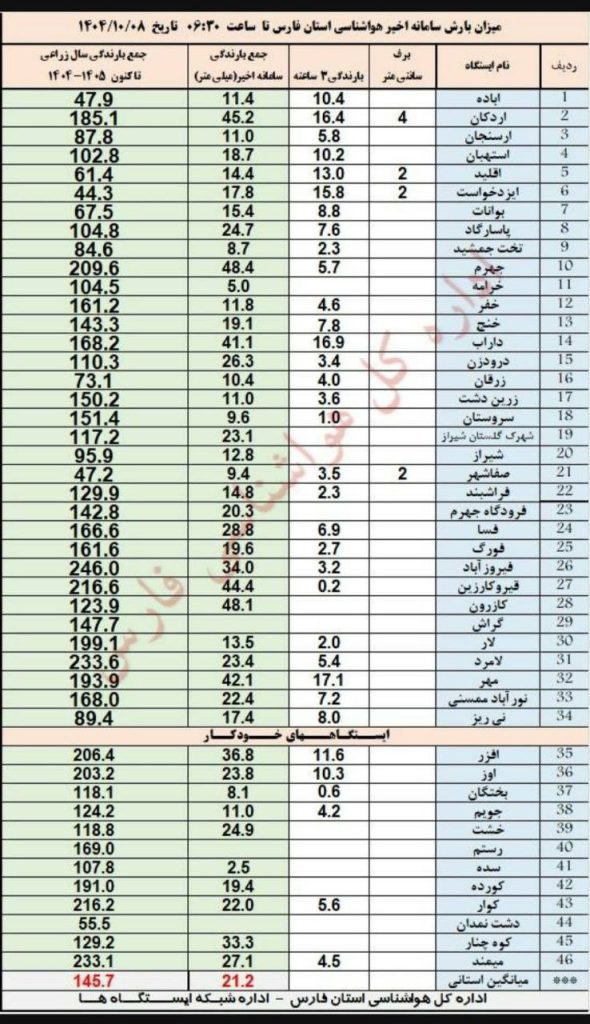 میزان بارش سامانه اخیر هواشناسی استان فارس تا ساعت ۰۶:۳۰ تاریخ ۱۴۰۴/۱۰/۰۸
ردیف نام ایستگاه برف سانتی متر بارندگی ۳ ساعته جمع بارندگی سامانه اخیر(میلی متر) جمع بارندگی سال زراعی تا کنون ۱۴۰۵-۱۴۰۴
1 اباده 10.4 11.4 47.9
2 اردکان 4 16.4 45.2 185.1
3 ارسنجان 5.8 11.0 87.8
4 استهبان 10.2 18.7 102.8
5 اقلید 2 13.0 14.4 61.4
6 ایزدخواست 2 15.8 17.8 44.3
7 بوانات 8.8 15.4 67.5
8 پاسارگاد 7.6 24.7 104.8
9 تخت جمشید 2.3 8.7 84.6
10 جهرم 5.7 48.4 209.6
11 خرامه 5.0 104.5
12 خفر 4.6 11.8 161.2
13 خنج 7.8 19.1 143.3
14 داراب 16.9 41.1 168.2
15 درودزن 3.4 26.3 110.3
16 زرقان 4.0 10.4 73.1
17 زرین دشت 3.6 11.0 150.2
18 سروستان 1.0 9.6 151.4
19 شهرک گلستان شیراز 23.1 117.2
20 شیراز 12.8 95.9
21 صفاشهر 2 3.5 9.4 47.2
22 فراشبند 2.3 14.8 129.9
23 فرودگاه جهرم 20.3 142.8
24 فسا 6.9 28.8 166.6
25 فورگ 2.7 19.6 161.6
26 فیروز آباد 3.2 34.0 246.0
27 قیروکارزین 0.2 44.4 216.6
28 کازرون 48.1 123.9
29 گراش 147.7
30 لار 2.0 13.5 199.1
31 لامرد 5.4 23.4 233.6
32 مهر 17.1 42.1 193.9
33 نور آباد ممسنی 7.2 22.4 168.0
34 نی ریز 8.0 17.4 89.4
ایستگاههای خودکار
35 افزر 11.6 36.8 206.4
36 اوز 10.3 23.8 203.2
37 بختگان 0.6 8.1 118.1
38 جویم 4.2 11.0 124.2
39 خشت 24.9 118.8
40 رستم 169.0
41 سده 2.5 107.8
42 کورده 19.4 191.0
43 کوار 5.6 22.0 216.2
44 دشت نمدان 55.5
45 کوه چنار 33.3 129.2
46 میمند 4.5 27.1 233.1
*** میانگین استانی 21.2 145.7
اداره کل هواشناسی استان فارس - اداره شبکه ایستگاه ها
اداره کل هواشناسی فارس